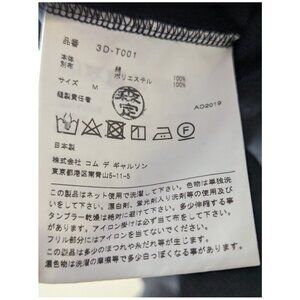 品番 3D-T001
本体 綿 100%
別布 ポリエステル 100%
サイズ M
縫製責任者
森
定
AD2019
F
日本製
株式会社 コム デ ギャルソン
東京都港区南青山5-11-5
この製品はネット使用で洗濯して下さい。色物は単独洗
いをして下さい。漂白剤、蛍光剤入り洗剤等の使用及び
タンブラー乾燥は絶対に避けて下さい。多少伸縮する事
があります。アイロン掛けは必ず当て布をして下さい。
フリル部分にはアイロンを当てないでください。
この製品は多少のほつれや糸だれ等が生じます。
濃色物は洗濯の摩擦等で多少白っぽくなる事が有ります。